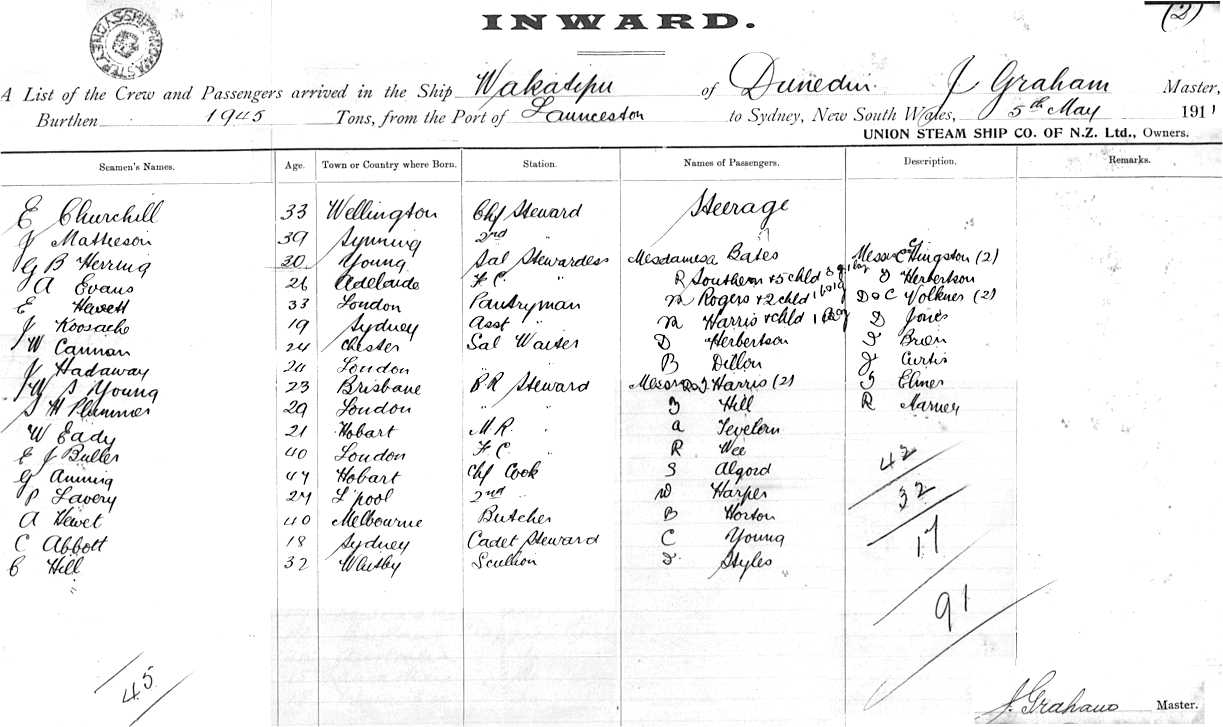 (2)
INWARD.
A List of the Crew and Passengers arrived in the Ship Wakatipu of Dunedin J Graham Master,
Burthen 1945 Tons, from the Port of Launceston to Sydney, New South Wales, 5th May 1911
UNION STEAM SHIP CO. OF N.Z. Ltd., Owners.
Seamen's Names. Age. Town or Country where Born. Station. Names of Passengers. Description. Remarks.
E Churchill 33 Wellington Chf Steward Steerage
J Matheson 39 2nd "
G B Herring 30 Young Sal Stewardess Mesdames Bates Messrs Hingston (2)
A Evans 26 Adelaide F.C. " R Southern + 5 chld Herbertson
E Hewett 33 London Pantryman M Rogers + 2 chld D & C Volkner (2)
J 19 Sydney Asst " M Harris + chld 1 boy D Jones
W Cannon 24 Chester Sal Waiter D Herbertson
J Hadaway 24 London B Dillon J Curtis
W S Young 23 Brisbane B R Steward Messrs Harris (2) Elmer
S H Plummer 29 London " " " Hill R
W Eady 21 Hobart M R. " A
E J Buller 40 London F C. " R Wee
G 47 Hobart Chf Cook S
P Lavery 27 L'pool 2nd " W Harper
A Hewet 40 Melbourne Butcher B Horton
C Abbott 18 Sydney Cadet Steward C Young
C Hill 32 Whitby Scullion Styles
42
32
17
91
45
J. Graham Master.